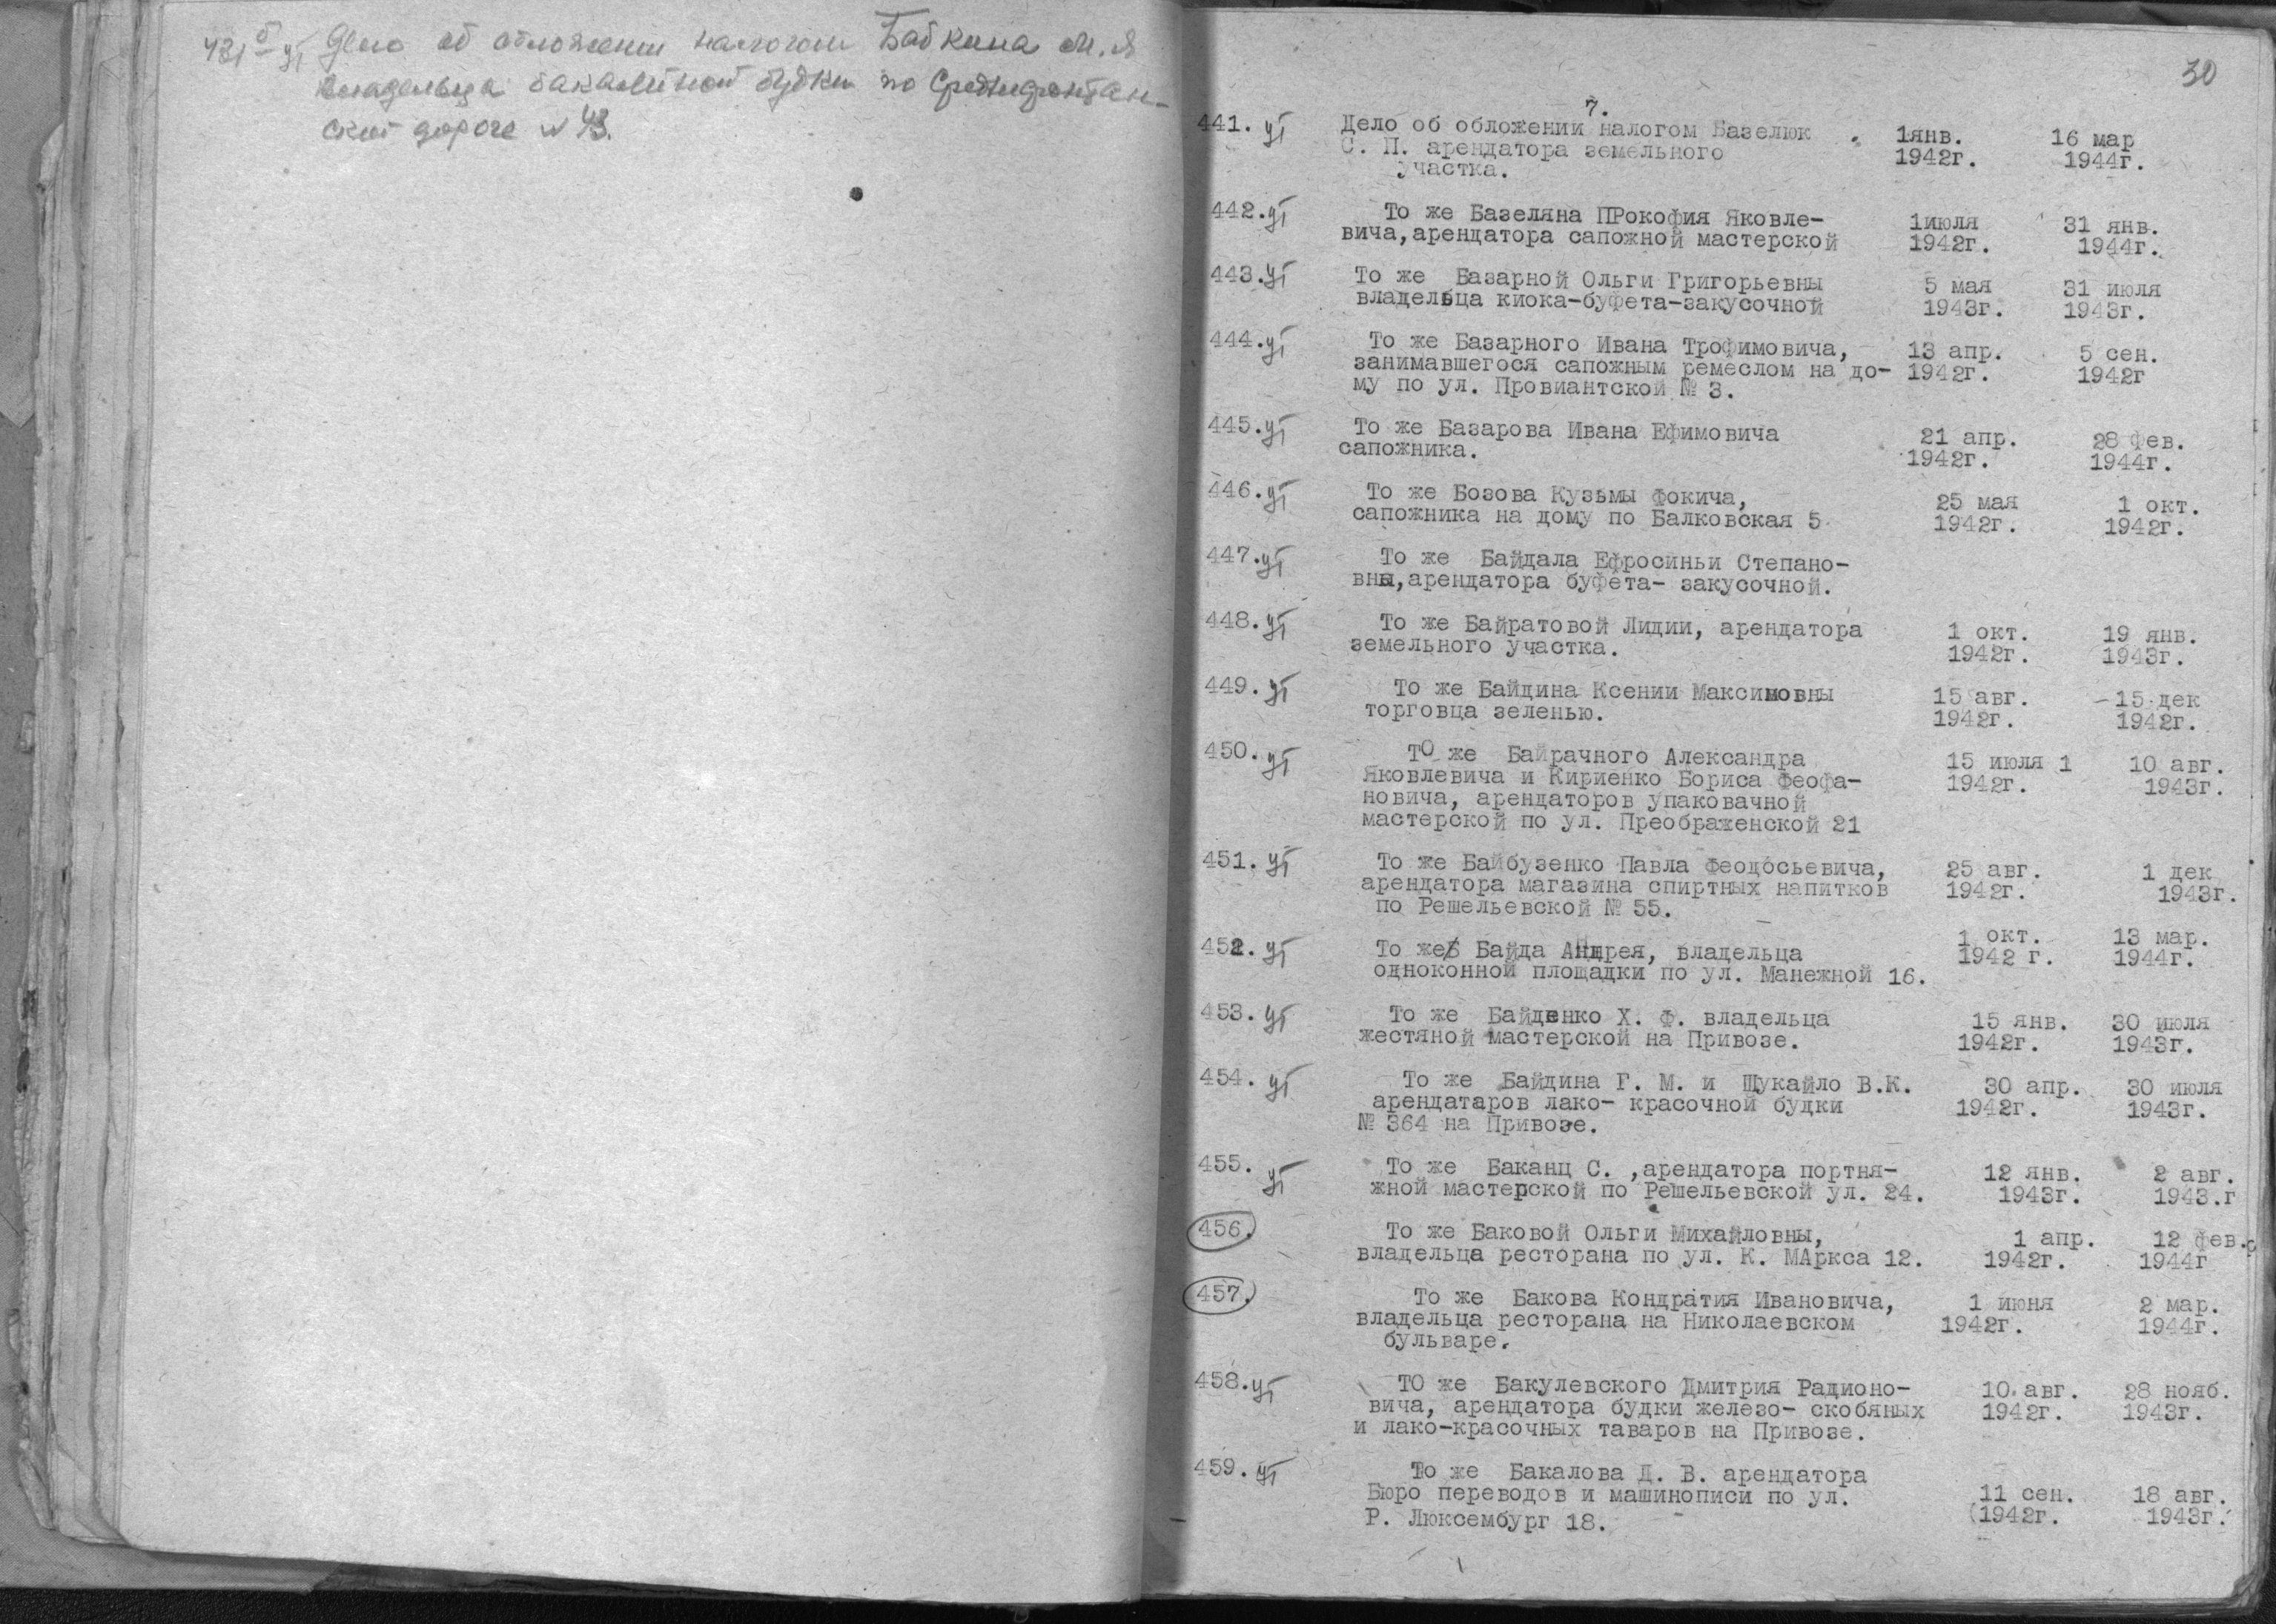 431 б уг Дело об обложении налогом Бабкина М. Я
владельца бакалейной будки по Среднефонтан-
ской дороге № 43.
30
7.
441. уг Дело об обложении налогом Базелюк 1янв. 16 мар
С. П. арендатора земельного 1942г. 1944г.
участка.
442. уг То же Базеляна ПРокофия Яковле- 1июля 31 янв.
вича, арендатора сапожной мастерской 1942г. 1944г.
443. уг То же Базарной Ольги Григорьевны 5 мая 31 июля
владельца киока-буфета-закусочной 1943г. 1943г.
444. уг То же Базарного Ивана Трофимовича, 13 апр. 5 сен.
занимавшегося сапожным ремеслом на до- 1942г. 1942г
му по ул. Провиантской № 3.
445. уг То же Базарова Ивана Ефимовича 21 апр. 28 фев.
сапожника. 1942г. 1944г.
446. уг То же Бозова Кузьмы Фокича, 25 мая 1 окт.
сапожника на дому по Балковская 5 1942г. 1942г.
447. уг То же Байдала Ефросиньи Степано-
вны, арендатора буфета- закусочной.
448. уг То же Байратовой Лидии, арендатора 1 окт. 19 янв.
земельного участка. 1942г. 1943г.
449. уг То же Байдина Ксении Максимовны 15 авг. 15 дек
торговца зеленью. 1942г. 1942г.
450. уг ТО же Байрачного Александра 15 июля 1 10 авг.
Яковлевича и Кириенко Бориса Феофа- 1942г. 1943г.
новича, арендаторов упаковачной
мастерской по ул. Преображенской 21
451. уг То же Байбузенко Павла Феодосьевича, 25 авг. 1 дек
арендатора магазина спиртных напитков 1942г. 1943г.
по Решельевской № 55.
452. уг То же Байда Андрея, владельца 1 окт. 13 мар.
одноконной площадки по ул. Манежной 16. 1942 г. 1944г.
453. уг То же Байденко Х. Ф. владельца 15 янв. 30 июля
жестяной мастерской на Привозе. 1942г. 1943г.
454. уг То же Байдина Г. М. и Щукайло В.К. 30 апр. 30 июля
арендатаров лако- красочной будки 1942г. 1943г.
№ 364 на Привозе.
455. уг То же Баканц С. ,арендатора портня- 12 янв. 2 авг.
жной мастерской по Решельевской ул. 24. 1943г. 1943.г
456. То же Баковой Ольги Михайловны, 1 апр. 12 фев.
владельца ресторана по ул. К. МАркса 12. 1942г. 1944г
457. То же Бакова Кондратия Ивановича, 1 июня 2 мар.
владельца ресторана на Николаевском 1942г. 1944г.
бульваре.
458. уг ТО же Бакулевского Дмитрия Радионо- 10 авг. 28 нояб.
вича, арендатора будки железо- скобяных 1942г. 1943г.
и лако-красочных таваров на Привозе.
459. уг То же Бакалова Д. В. арендатора
Бюро переводов и машинописи по ул. 11 сен. 18 авг.
Р. Люксембург 18. (1942г. 1943г.